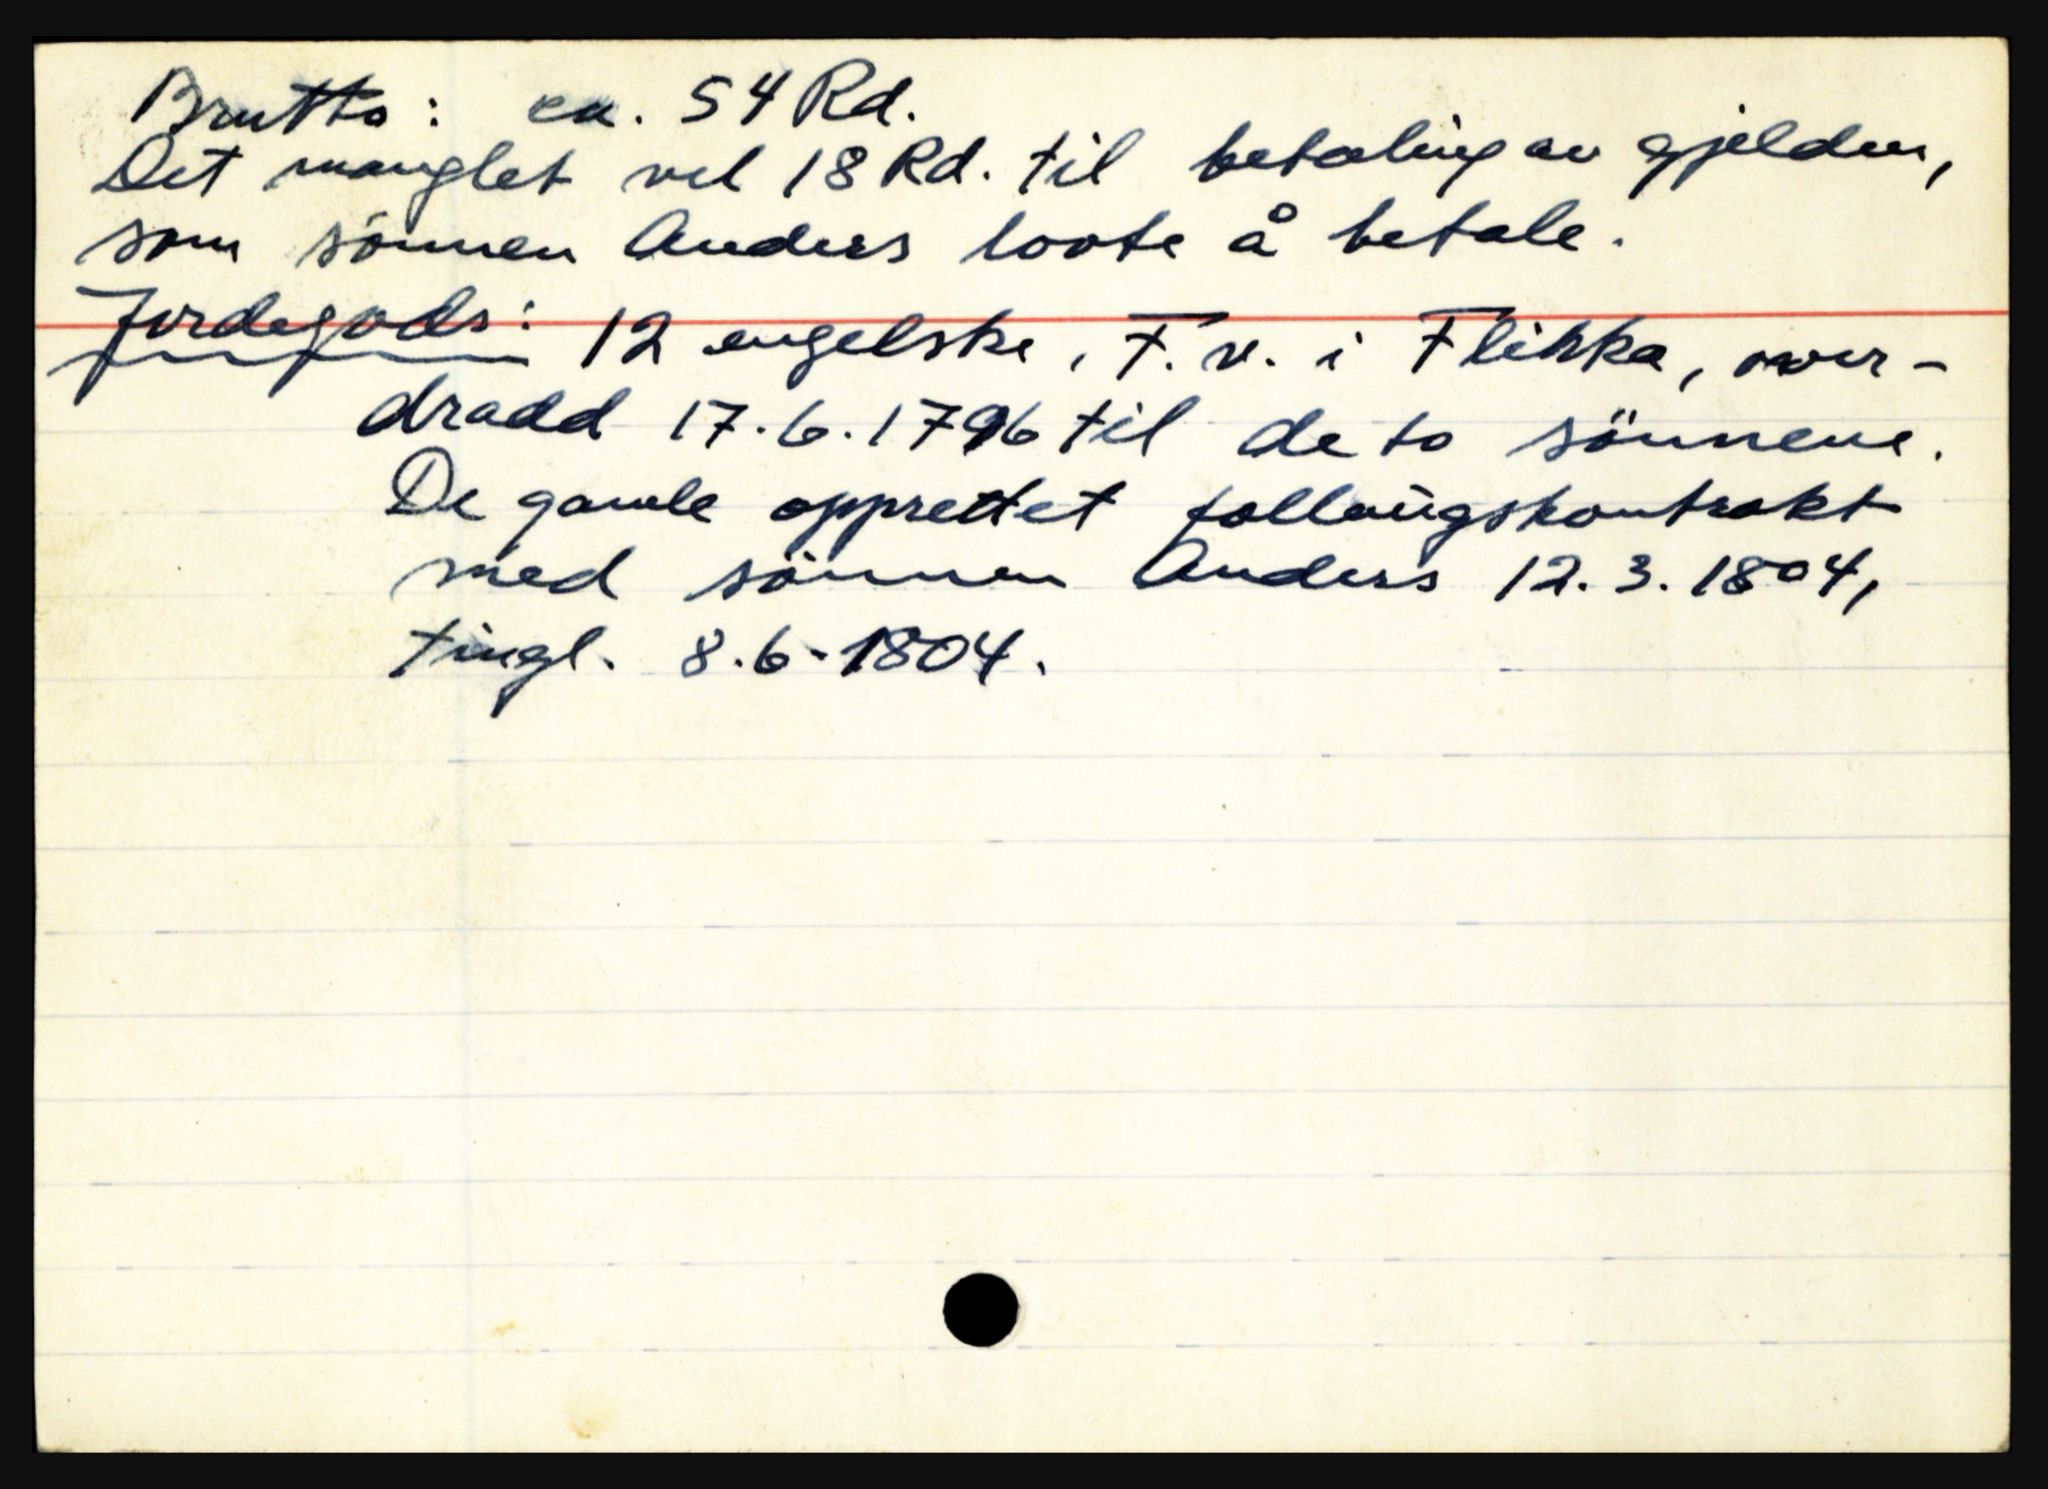 Brutto: ca. 54 Rd.
Det manglet vel 18 Rd. til betaling av gjelden,
som sönnen Anders lovte å betale.
Jordegods: 12 engelske, F. v. i Flikka, over-
dradd 17.6.1796 til de to sönnene.
De gamle opprettet follaugskontrakt
med sönnen Anders 12.3.1804,
tingl. 8.6.1804.